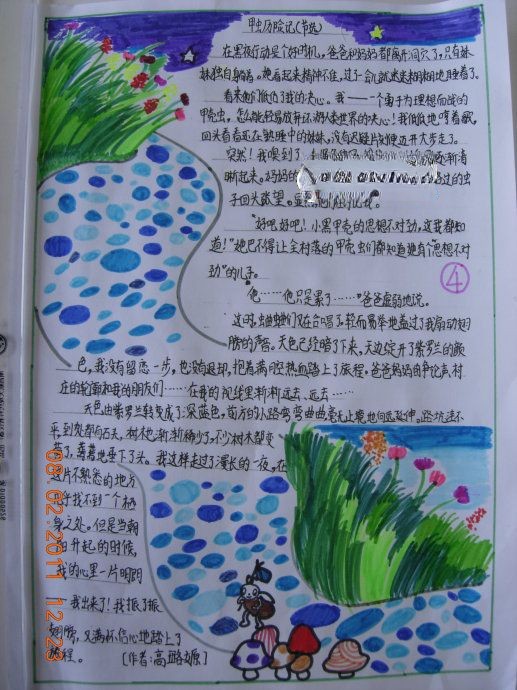 甲虫历险记(节选)
在黑夜行动是个好时机，爸爸和妈妈都离开洞穴了，只有妹
妹独自躺着。她看起来精神不佳，过了一会儿就迷迷糊糊地睡着了。
看来他们低估了我的决心。我——一个勇于为理想而战的
甲壳虫，怎么能轻易放弃环游人类世界的决心！我低低地哼着歌，
回头看看还在熟睡中的妹妹，没有迟疑片刻便迈开大步走了。
突然！我嗅到了
逐渐清
晰起来。妈妈的
过的虫
子回头观望。
“好吧好吧！小黑甲壳的思想不对劲，这我都知
道！”她巴不得让全村落的甲壳虫们都知道她有个“思想不对
劲”的儿子。
“他……他只是累了……”爸爸虚弱地说。
④
这时，蛐蛐们又在合唱了，轻而易举地盖过了我扇动翅
膀的声音。天色已经暗了下来，天边绽开了紫罗兰的颜
色，我没有留恋一步，也没有退却，抱着满腔热血踏上了旅程。爸爸妈妈的争论声，村
庄的轮廓和我的朋友们……在我的视线里渐渐远去、远去……
天色由紫罗兰转变成了深蓝色，前方的小路弯弯曲曲毫无止境地向远延伸。路坑洼不
平，到处都有石头，树木也渐渐稀少了，不少树木都变
了，蔫蔫地垂下了头。我这样走过了漫长的一夜。在
这片不熟悉的地方
几乎找不到一个栖
身之处。但是当朝
日升起的时候，
我的心里一片明朗
——我出来了！我振了振
翅膀，又满怀信心地踏上了
旅程。 [作者：高
08.02.2011 12:23